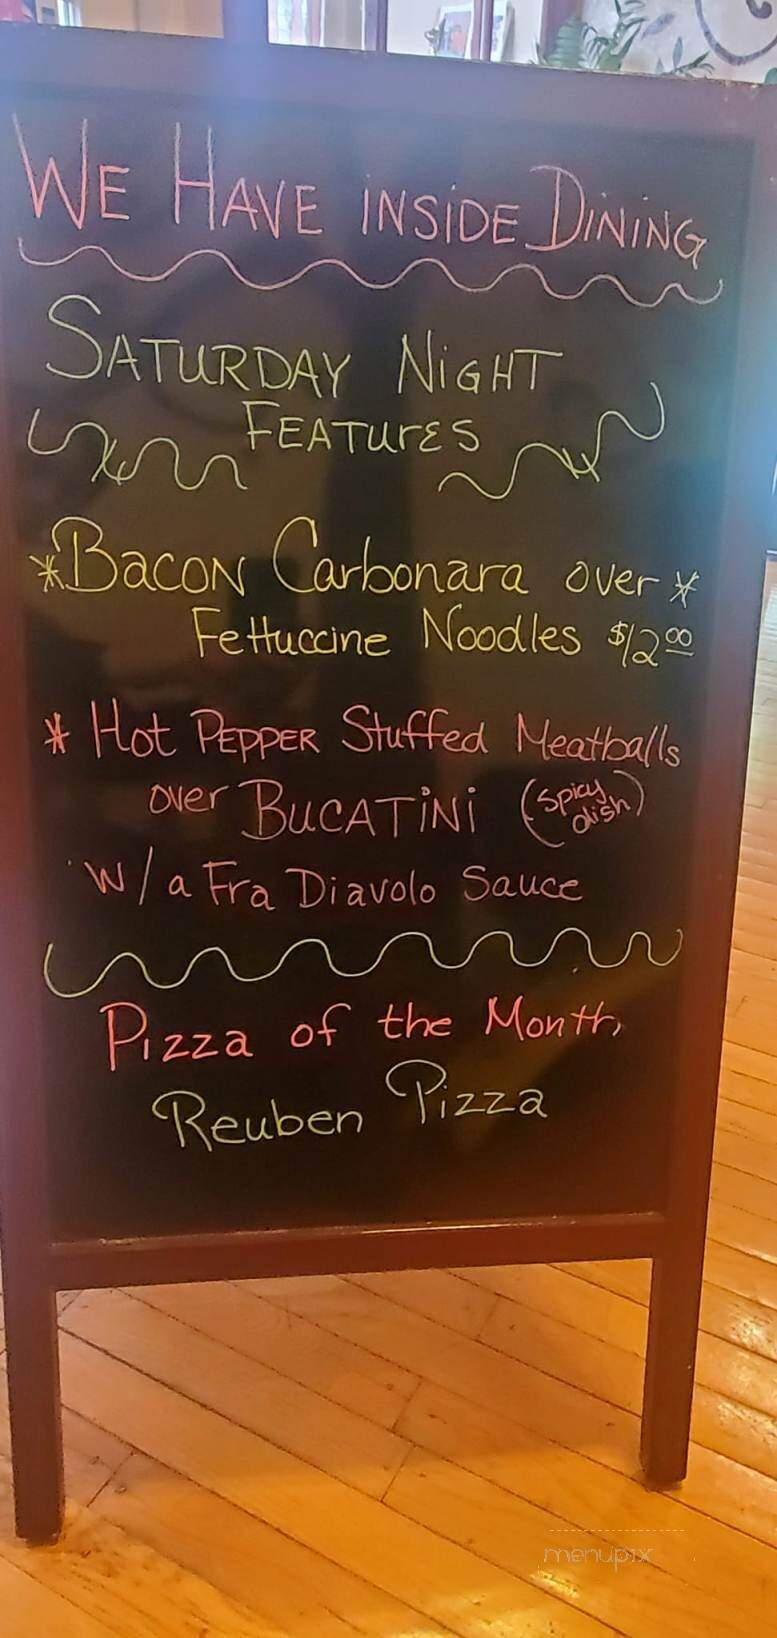 WE HAVE iNSiDE DiNiNG
SATURDAY NiGHT
FEATUrES
*BacoN Carbonara over *
Fettuccine Noodles $12.00
* Hot PEPPER Stuffed Meatballs
over BUCATiNi (Spicy dish)
W/a Fra Diavolo Sauce
Pizza of the Month,
Reuben Pizza
menupix